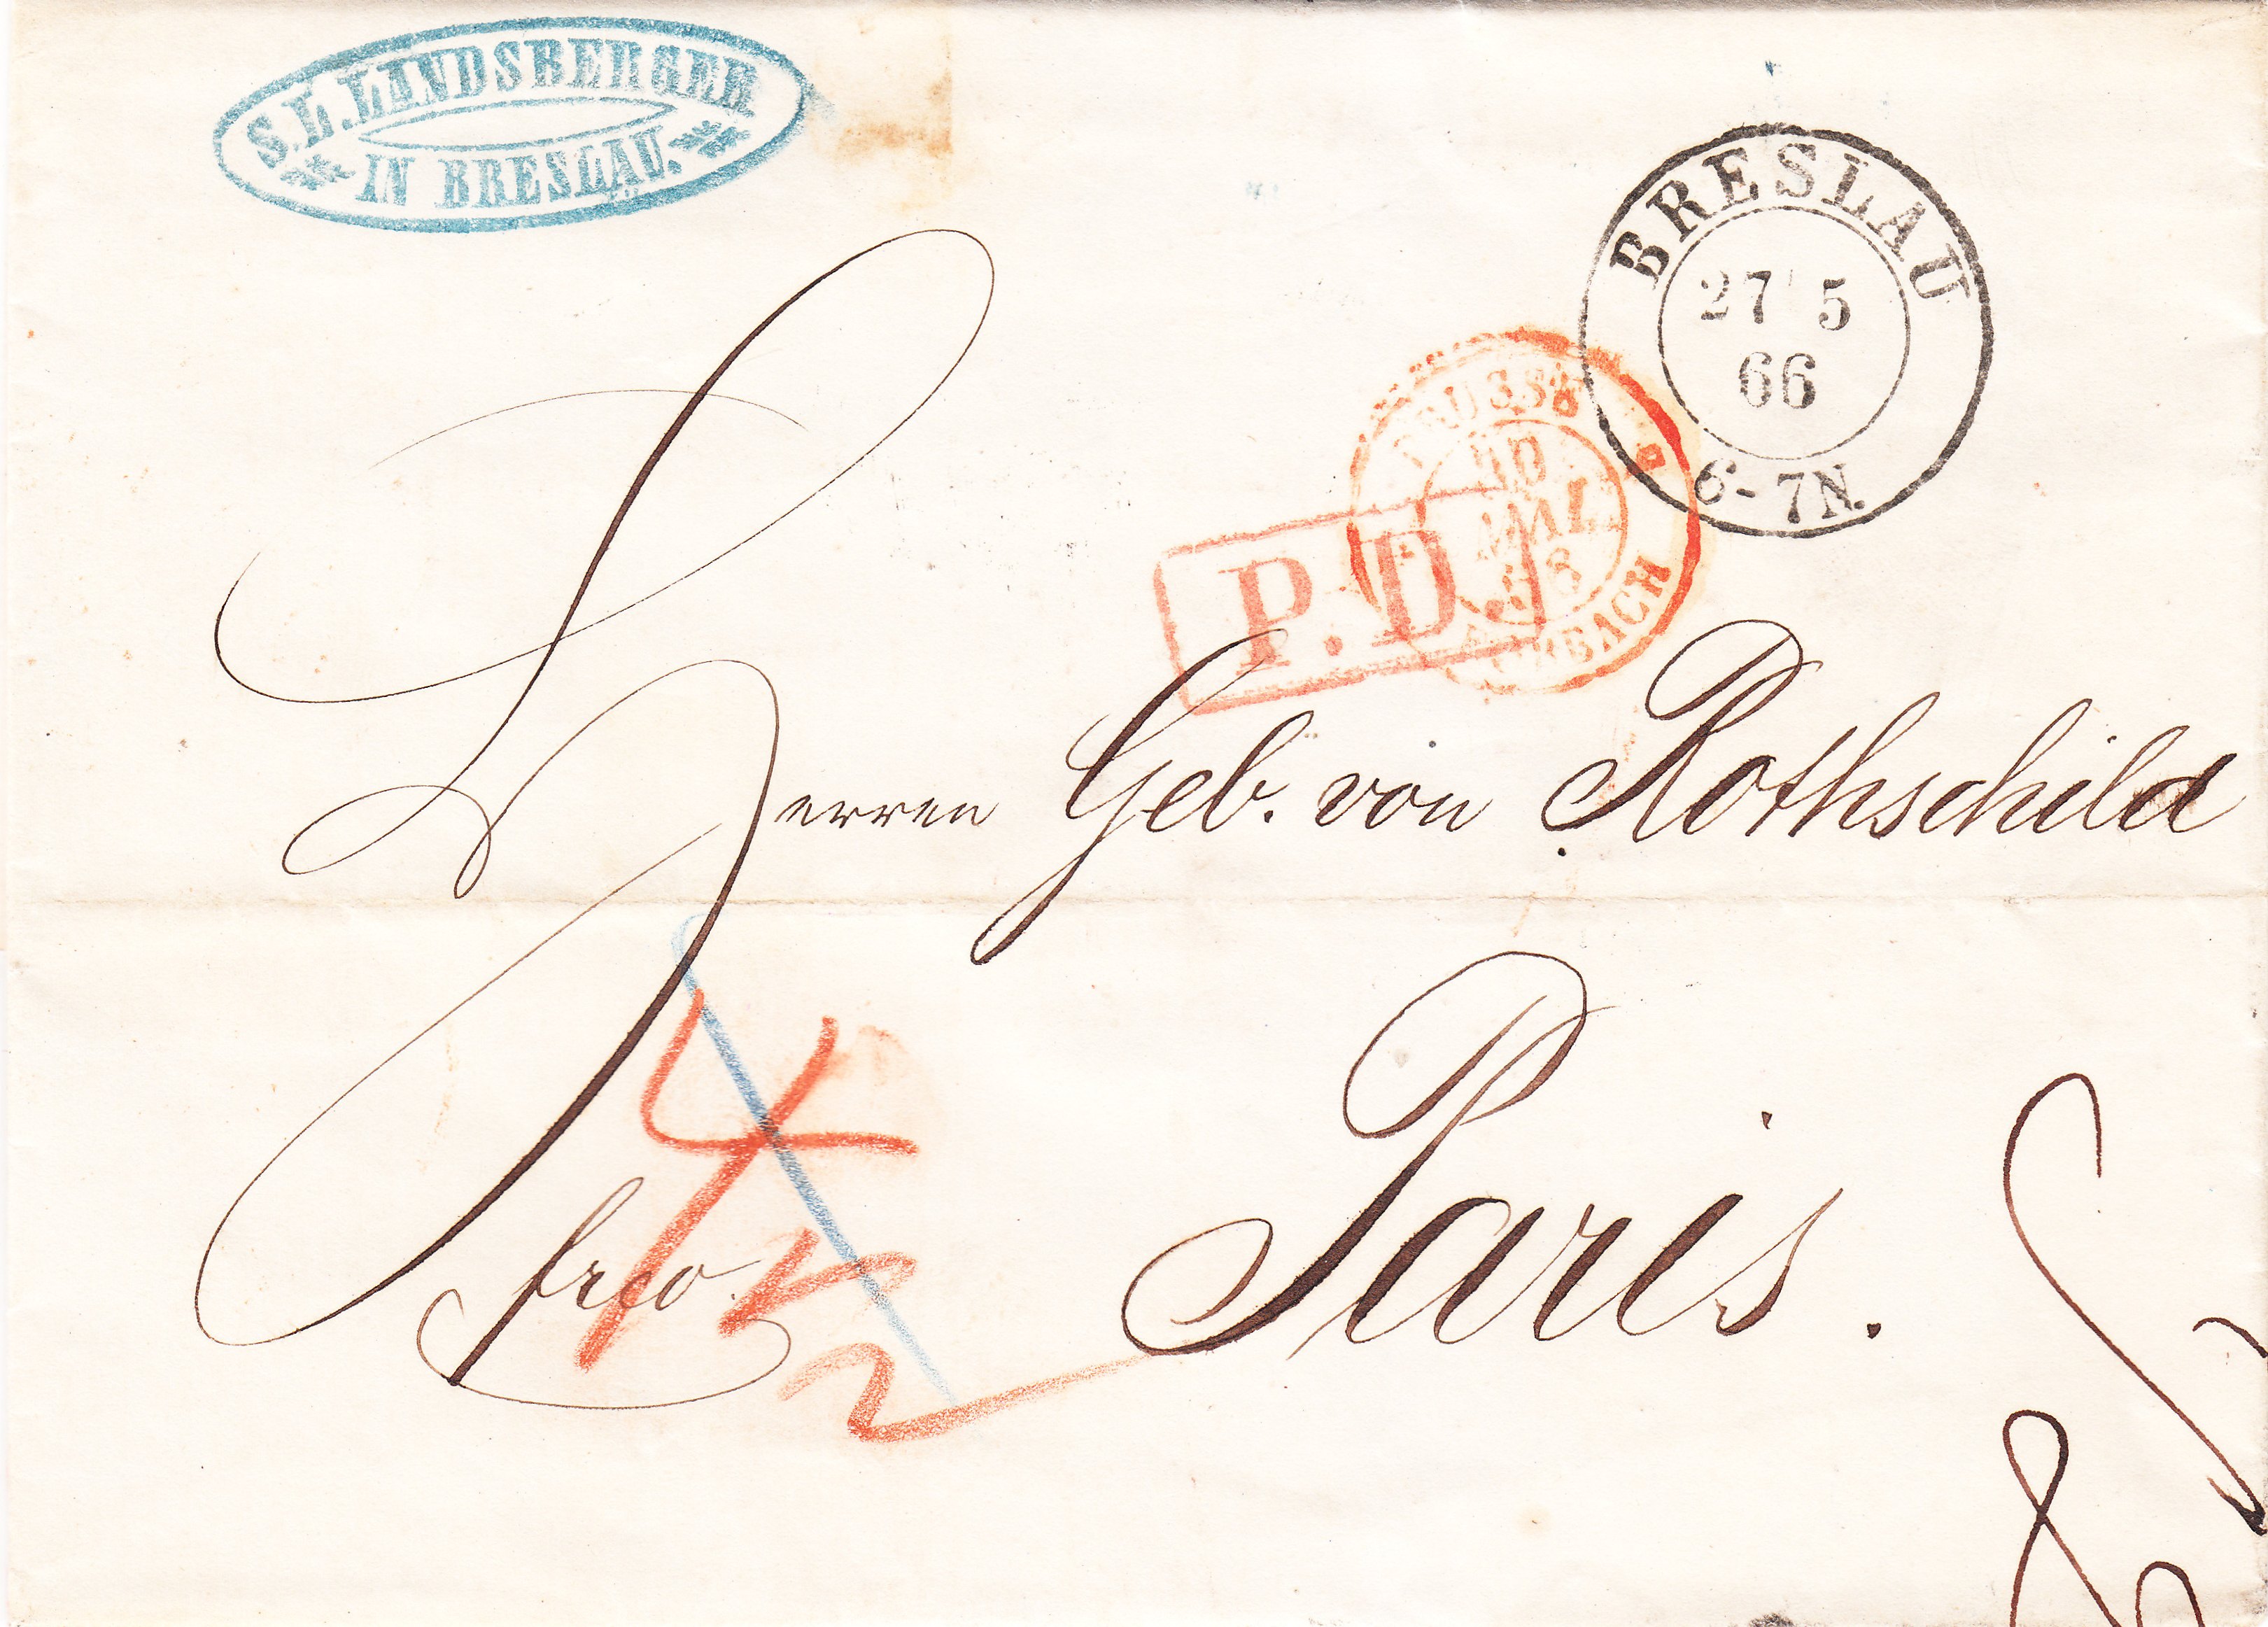 S. L. LANDSBERGER
IN BRESLAU.
BRESLAU
27 5
66
6-7N.
P.D.
Herren Geb. von Rothschild
Paris.
frco.